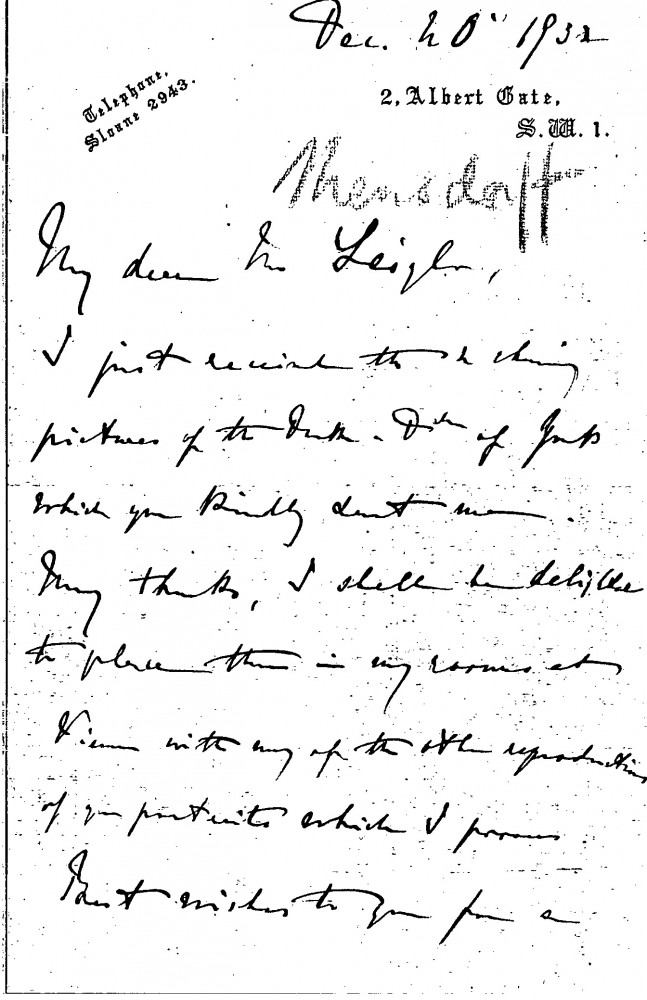 Dec. 20th 1932
Telephone,
Sloane 2943.
2, Albert Gate,
S.W. 1.
Mensdorff
My dear Mr Leigh,
I just received the charming
pictures of the Duke & Dss of York
which you kindly sent me.
Many thanks, I shall be delighted
to place them in my rooms at
Vienna with my of the other reproductions
of your portraits which I possess
Best wishes to you for a